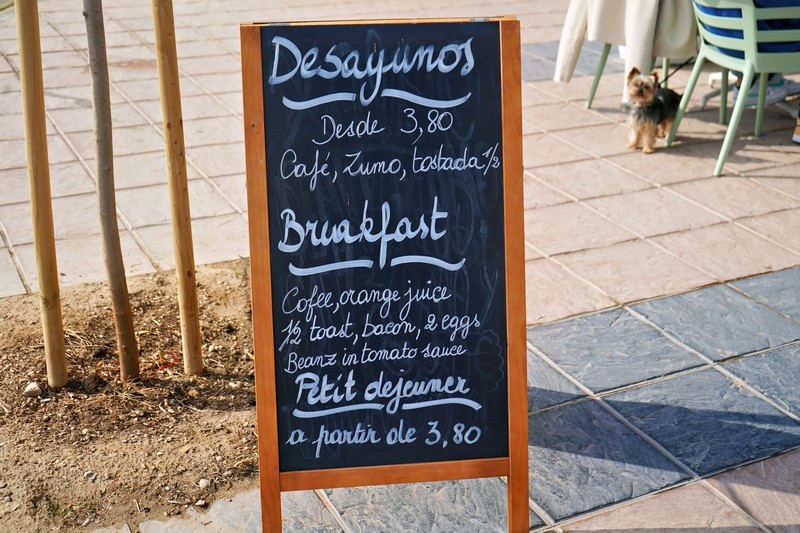 Desayunos
Desde 3,80
Café, Zumo, tostada 1/2
Breakfast
Cofee, orange juice
1/2 toast, bacon, 2 eggs
Beanz in tomato sauce
Petit dejeuner
a partir de 3,80